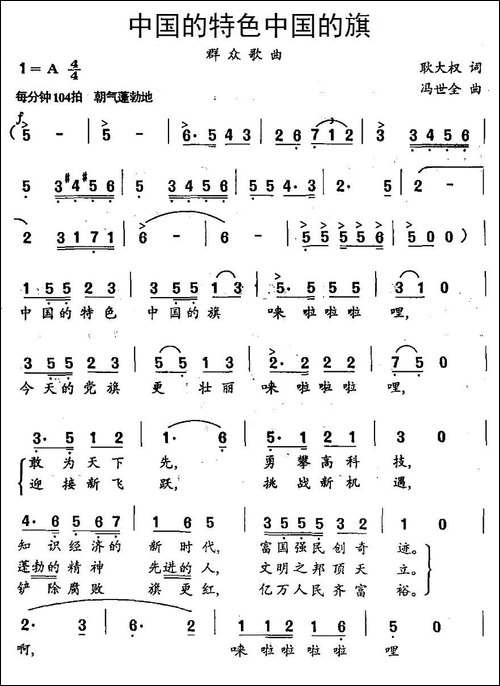 中国的特色中国的旗
群众歌曲
1=A 4/4
耿大权 词
每分钟104拍 朝气蓬勃地
冯世全 曲
f
(5 - 5 - | 6· 5 4 3 | 2 6 7 1 2 | 3 3 4 5 6 |
5 3 #4 #5 6 | 5 3 4 5 6 | 5 5 4· 3 | 2· 5 | 2 - |
2 3 1 7 1 | 6 - | 6 - | 5 5 5 5 6 | 5 0 0 ) |
1 5 5 2 3 | 3 5 5 1 3 | 5· 5 5 5 | 3 1 0 |
中国的特色 中国的旗 唻啦啦啦 哩,
3 5 5 2 3 | 5 5 1 3 | 2· 2 2 2 | 7 5 0 |
今天的党旗 更壮丽 唻啦啦啦 哩,
3· 5 1 2 | 1· 6 | 5· 1 2 1 | 3 0 |
敢为天下先, 勇攀高科技,
迎接新飞跃, 挑战新机遇,
4· 6 5 6 5 | 1 6 5 | 3 5 5 5 3 2 | 1 0 |
知识经济的 新时代, 富国强民创奇迹。
蓬勃的精神 先进的人, 文明之邦顶天立。
铲除腐败 旗更红, 亿万人民齐富裕。
2· 3 | 6 - | 2· 1 6 1 6 | 5 0 |
啊, 唻啦啦啦啦 哩